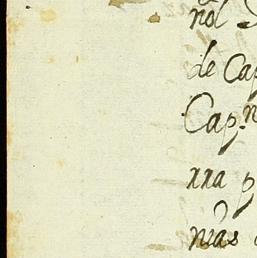 ñol
de Cap
Cap.n
rra p
nias